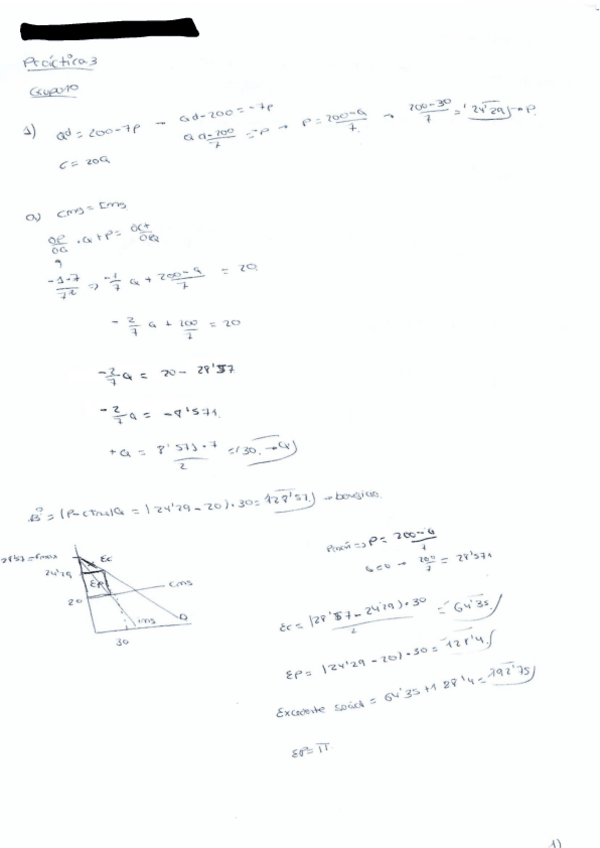 Práctica 3
Grupo 10
1) Qd = 200 - 7P → Qd - 200 = -7P
Qd - 200 / 7 = -P → P = 200 - Q / 7 → 200 - 30 / 7 = 24'29 → P
C = 20Q
a) Cmg = Img
∂P/∂Q · Q + P = ∂CT/∂Q
-1·7 / 7² ⇒ -1/7 Q + 200 - Q / 7 = 20
- 2/7 Q + 200/7 = 20
- 2/7 Q = 20 - 28'57
- 2/7 Q = -8'571
+Q = 8'571 · 7 / 2 = 30 → Q
B° = (P - CTme)Q = (24'29 - 20) · 30 = 128'57 →
28'57 = Pmax
24'29
20
30
EC
EP
Cmg
Img
D
P = 200 - Q / 7
Q = 0 → 200/7 = 28'571
EC = (28'57 - 24'29) · 30 / 2 = 64'35
EP = (24'29 - 20) · 30 = 128'4
Excedente social = 64'35 + 128'4 = 192'75
EP = π
1)